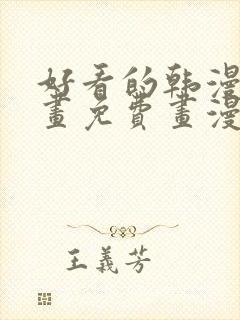 好看的韩漫
畫免费畫漫
王義芳